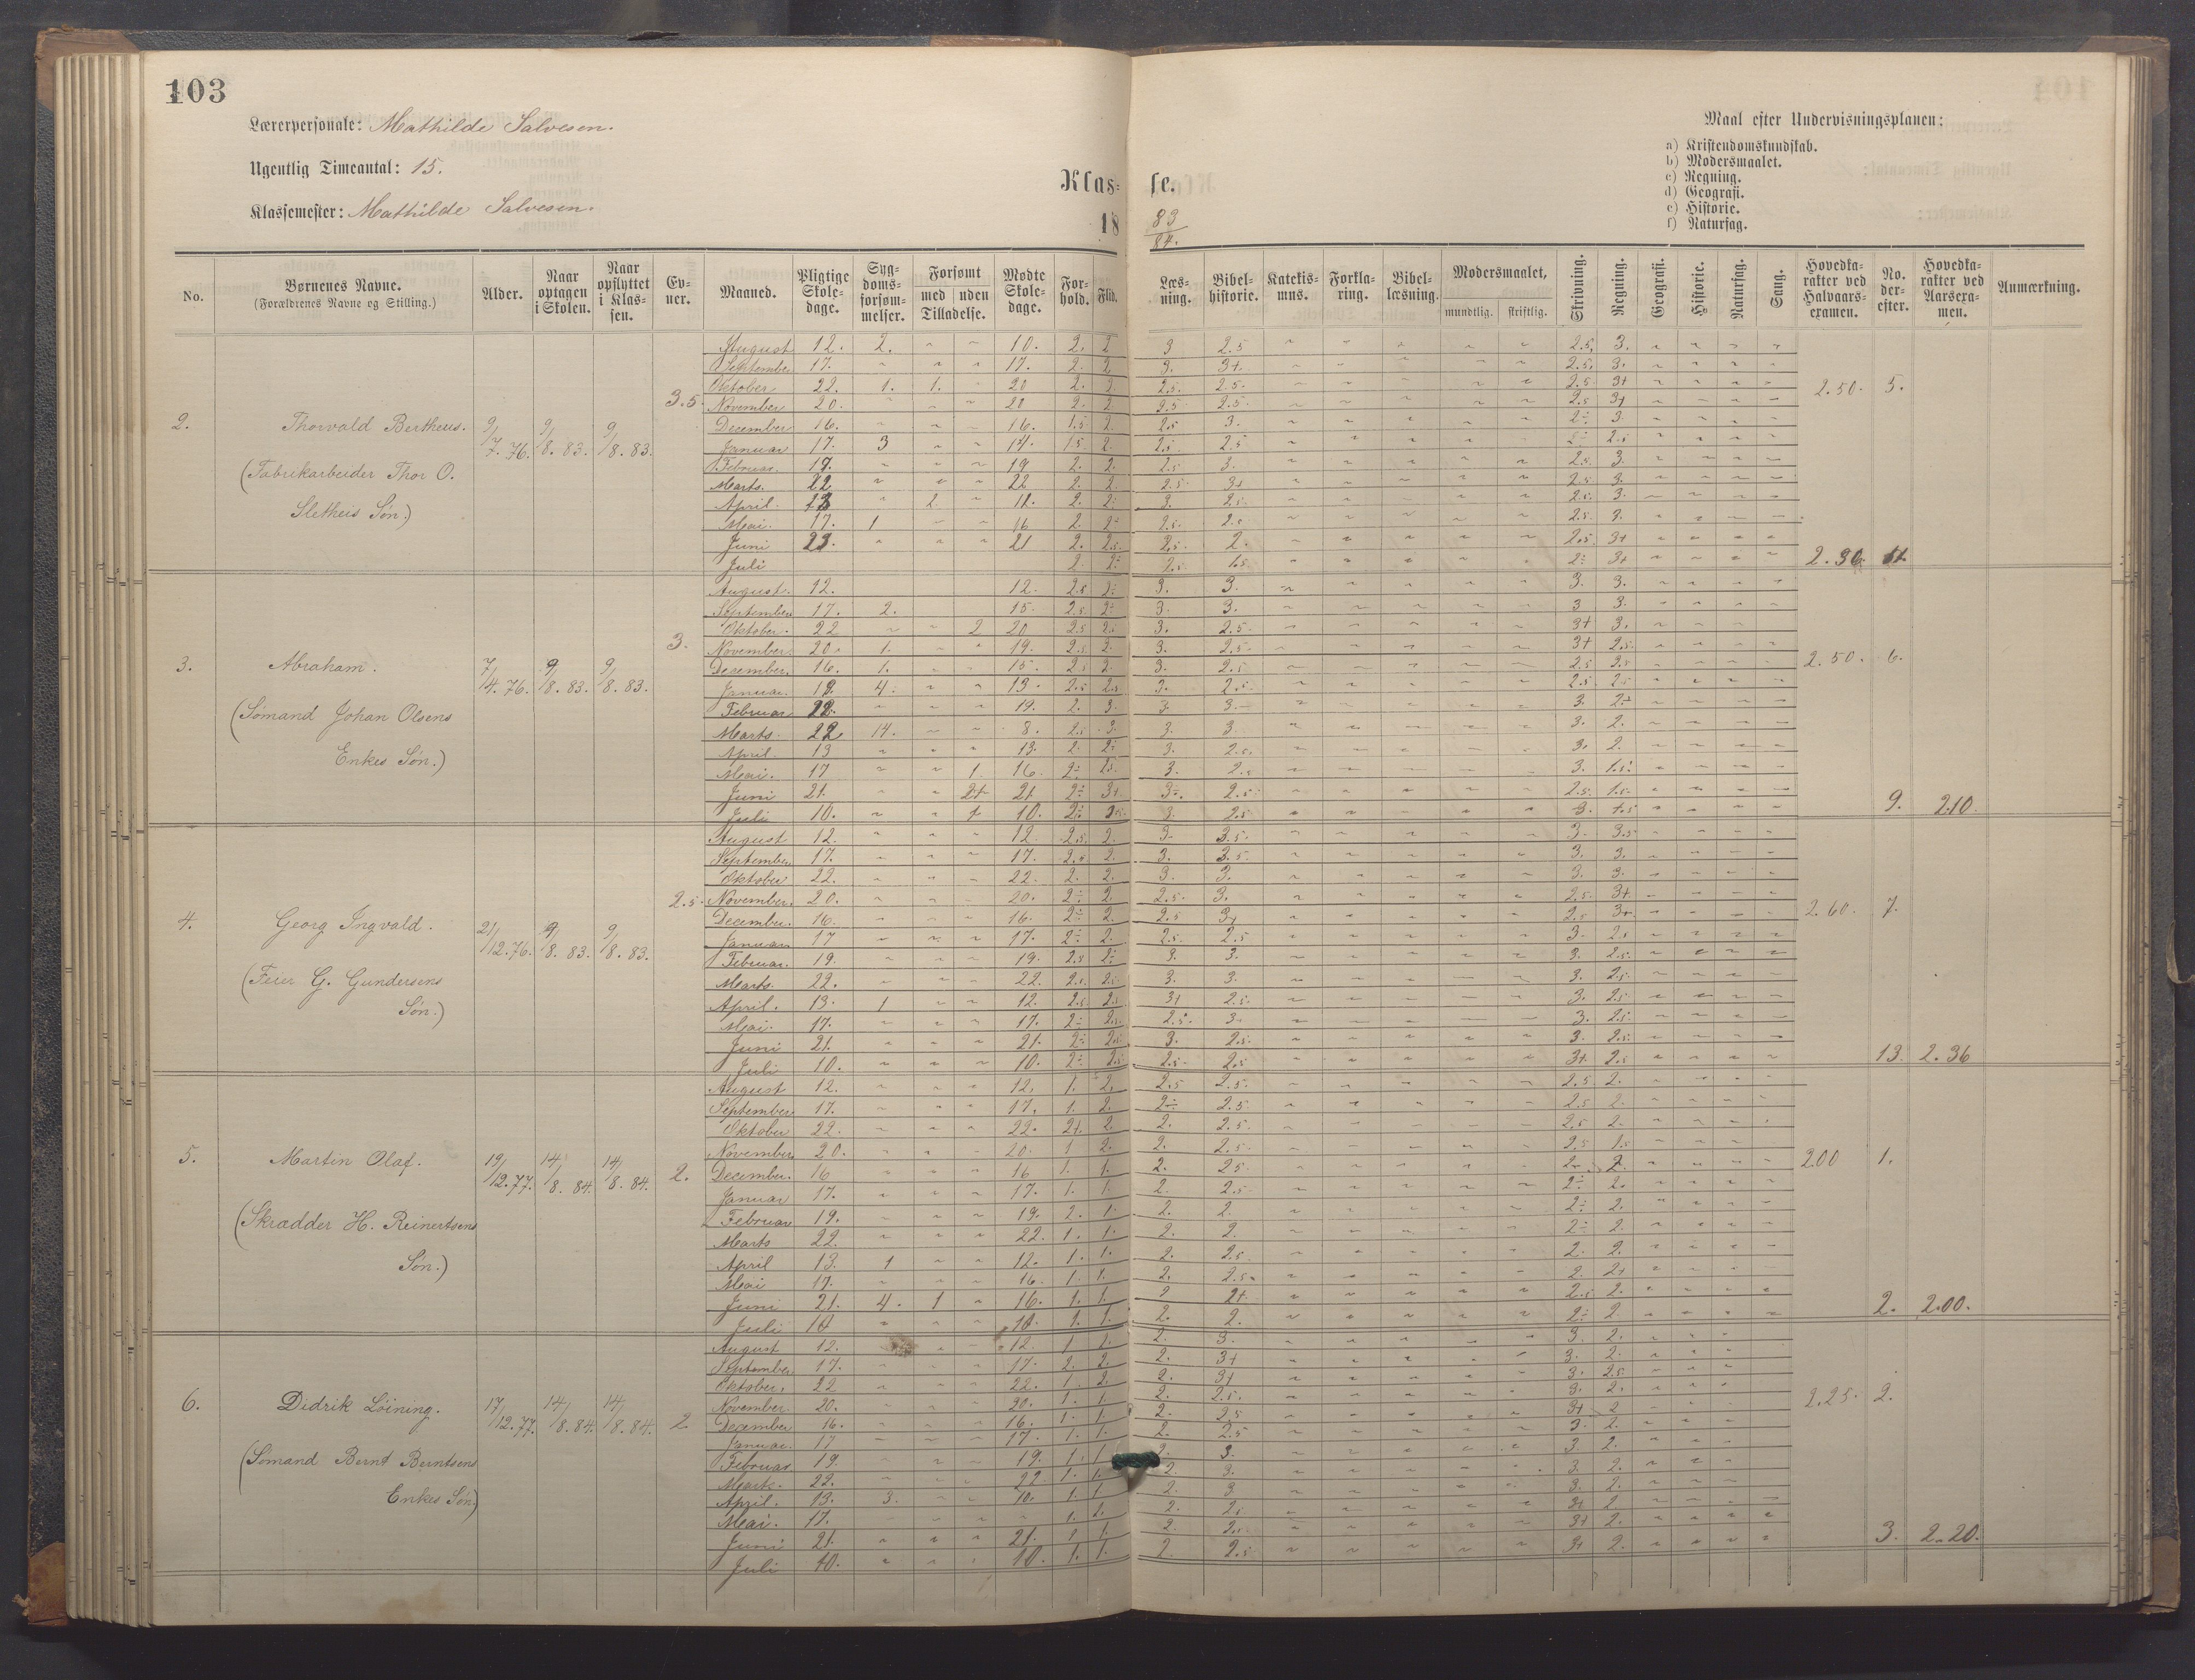 103
Lærerpersonale: Mathilde Salvesen.
Ugentlig Timeantal: 15.
Klassemester: Mathilde Salvesen.
Klasse.
18 83/84.
Maal efter Undervisningsplanen:
a) Kristendomskundskab.
b) Modersmaalet.
c) Regning.
d) Geografi.
e) Historie.
f) Naturfag.
No.
Børnenes Navne.
(Forældrenes Navne og Stilling.)
Alder.
Naar optagen i Skolen.
Naar opflyttet i Klassen.
Evner.
Maaned.
Pligtige Skoledage.
Sygdomsforsømmelser.
Forsømt
med uden
Tilladelse.
Mødte Skoledage.
Forhold.
Flid.
Læsning.
Bibelhistorie.
Katekismus.
Forklaring.
Bibellæsning.
Modersmaalet,
mundtlig. skriftlig.
Skrivning.
Regning.
Geografi.
Historie.
Naturfag.
Sang.
Hovedkarakter ved Halvaarsexamen.
No. derefter.
Hovedkarakter ved Aarsexamen.
Anmærkning.
2. Thorvald Bertheus. 9/7. 76. 9/8. 83. 9/8. 83. 3.5
(Fabrikarbeider Thor O.
Sletheis Søn.)
August 12. 2. 10. 2. 2 3 2.5 2.5 3.
September 17. 17. 2. 2 3. 3+ 2.5 3.
Oktober 22. 1. 1. 20 2. 2 2.5 2.5 2.5 3+
November 20. 20 2. 2 2.5 2.5 2.5 3+
December 16. 16. 1.5 2. 2.5 3.
Januar 17. 3 14. 2. 2.5 2.5
Februar. 19. 2. 2. 2.5 3. 2.5 3.
Marts. 22 22 2. 2. 2.5 3+ 2.5 3.
April. 2. 11. 2. 3. 2.5 2.5 3.
Mai. 17. 1 16 2. 2.5 2.5 2.5 3.
Juni 21 2. 2.5 2.5 2. 2.5 3+
Juli
2.50. 5.
3. Abraham. 7/4. 76. 9/8. 83. 9/8. 83. 3.
(Sømand Johan Olsens
Enkes Søn.)
August. 12. 12. 2.5 3. 3. 3. 3.
September 17. 2. 15. 2.5 3. 3. 3 3.
Oktober. 22 2 20 2.5 3. 2.5 3+ 3.
November. 20. 1. 19. 2.5 2. 3. 2.5 3+ 2.5
December. 16. 1. 15. 2.5 2. 3. 2.5 2.5 2.5
Januar. 4. 13. 2.5 2.5 3. 2.5 2.5 2.5
Februar 19. 2. 3. 3. 3. 3.
Marts. 22 14. 8. 2.5 3. 3. 3. 3. 2.
April. 13 13. 2. 3. 2.5 3. 2.
Mai. 17 1. 16. 3. 2.5 3. 1.5
Juni 21. 21. 2.5 2.5 1.5
Juli 10. 10. 2.5 3. 1.5
2.50. 6.
9. 2.10.
4. Georg Ingvald. 21/12. 76. 9/8. 83. 9/8. 83. 2.5
(Feier G. Gundersens
Søn.)
August 12. 12. 2.5 2. 3. 3.5 3. 3.5
September. 17. 17. 2.5 2. 3. 3.5 3. 3.
Oktober 22. 22. 2. 2. 3. 3. 3. 3.
November. 20. 20. 2. 2.5 3. 2.5 3+
December. 16. 16. 2. 2.5 3+ 2.5 3+
Januar 17 17. 2. 2.5 2.5 3. 2.5
Februar. 19. 19. 2.5 3. 3. 3. 2.5
Marts. 22. 22. 2.5 2.5 3. 3. 3. 2.5
April. 13. 1 12. 2.5 2.5 3+ 2.5 3. 2.5
Mai. 17. 17. 2.5 2.5 3. 3. 2.5
Juni 21. 21. 2.5 3. 2.5 3. 2.5
Juli 10. 10. 2.5 2.5 2.5 3+ 2.5
2.60. 7.
13. 2.36
5. Martin Olaf. 19/12. 77. 14/8. 84. 14/8. 84. 2.
(Skrædder H. Reinertsens
Søn.)
August 12. 12. 1. 2. 2.5 2.5 2.5 2.
September 17. 17. 1. 2. 2.5 2.5 2.
Oktober 22. 22. 2+ 2. 2. 2.5 2.5 2.
November 20. 20. 1 2. 2. 2.5 2.5 1.5
December. 16 16 1. 1. 2. 2.5 2.
Januar 17. 17. 1. 1. 2. 2.5
Februar 19. 19. 2. 1. 2. 2. 2.
Marts 22. 22. 1. 1. 2. 2. 2.
April 13. 1 12. 1. 1. 2. 2.5 2. 2.
Mai 17. 16. 1. 1. 2. 2.5 2. 2+
Juni 21. 4. 1 16. 1. 1. 2 2+ 2.5 2.
Juli 10 10. 1. 1. 2. 2. 2
2.00 1.
2. 2.00.
6. Didrik Löining. 17/12. 77. 14/8. 84. 14/8. 84. 2
(Sømand Bernt Berntsens
Enkes Søn.)
August 12. 12. 1 2. 2. 3. 3. 2.
September 17. 17. 2. 2. 2. 3+ 3. 2.
Oktober. 22 22. 1. 2. 2. 3+ 3. 2.5
November. 20. 20. 1. 1. 2. 2.5 3. 2.
December 16. 16. 1. 1. 2. 2.5 3+ 2
Januar. 17 17. 1. 1. 2. 2.5 3. 2.
Februar. 19. 19. 1. 1. 2. 3. 3. 2.
Marts. 22. 22 1. 1. 2. 3. 3. 2.
April. 13. 3. 10. 1. 1. 2. 3 3. 2.
Mai. 17. 1. 1. 2. 3+ 2.
Juni 21. 21. 1 1. 2. 3+ 2.
Juli 10. 10. 1. 1. 2. 2.5 3+ 2.
2.25. 2.
3. 2.20.